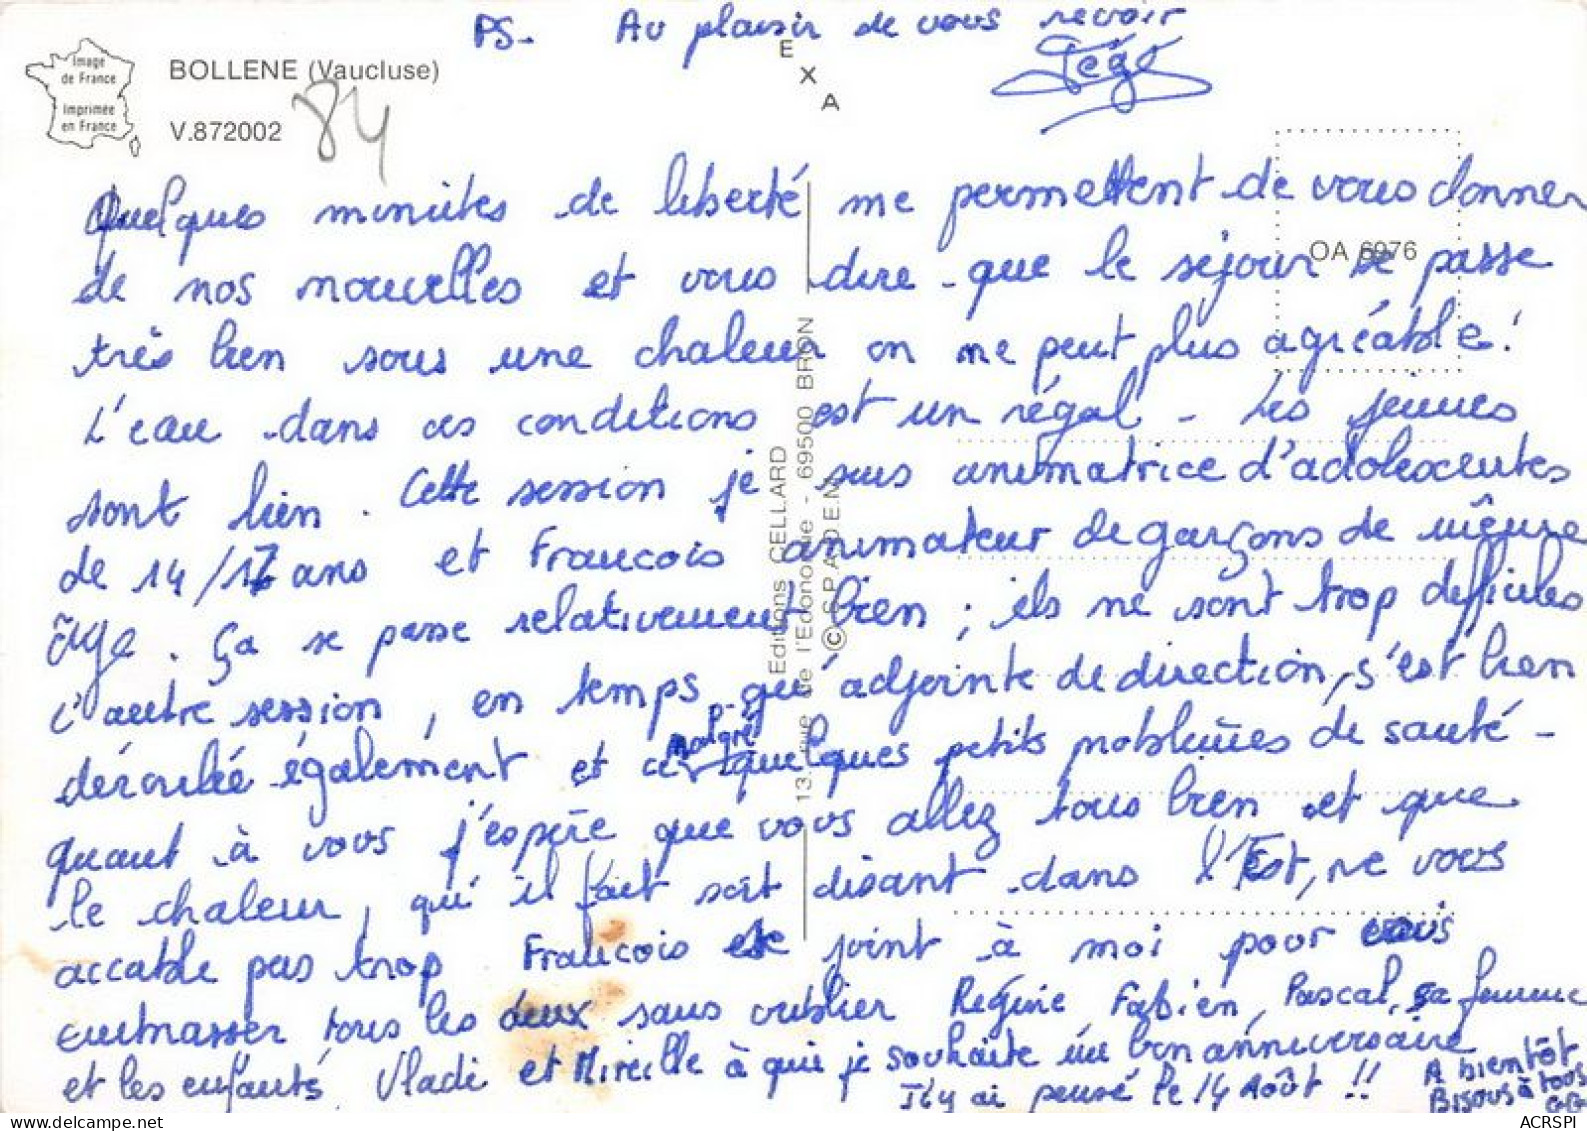 PS- Au plaisir de vous revoir
Image
de France
Imprimée
en France
BOLLENE (Vaucluse)
V.872002
84
E
X
A
OA 6976
Quelques minutes de liberté me permettent de vous donner
de nos nouvelles et vous dire que le séjour se passe
très bien sous une chaleur on ne peut plus agréable!
L'eau dans ces conditions est un régal - Les jeunes
sont bien. Cette session je suis animatrice d'adolescentes
de 14/17 ans et Francois animateur de garçons de même
âge. Ça se passe relativement bien ; ils ne sont trop difficiles
L'autre session, en temps qu'adjointe de direction, s'est bien
déroulée également et ce malgré quelques petits problèmes de santé -
quant à vous j'espère que vous allez tous bien et que
le chaleur, qu'il fait soit disant dans l'Est, ne vous
accable pas trop Francois se joint à moi pour vous
embrasser tous les deux sans oublier Régine Fabien, Pascal, sa femme
et les enfants, Vladi et Mireille à qui je souhaite un bon anniversaire
J'y ai pensé le 14 Août !!
A bientôt
Bisous à tous
GG
Editions CELLARD
13, rue de l'Edonoque - 69500 BRON
© S.P.A.D.E.M.
delcampe.net
ACRSPI